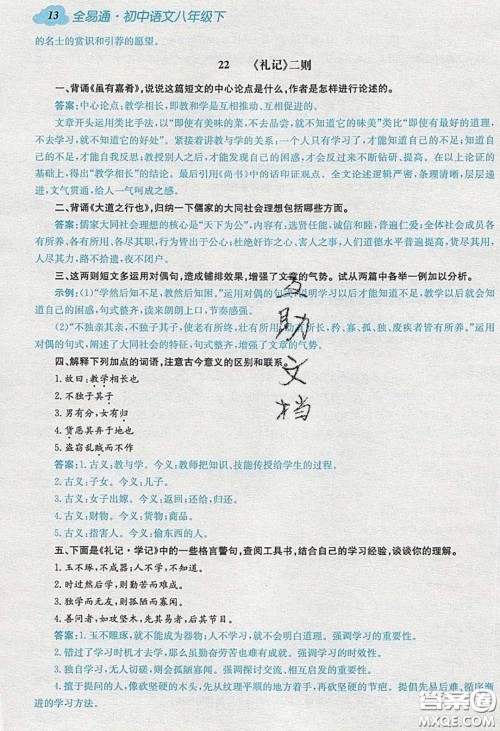 13 全易通·初中语文八年级下
的名士的赏识和引荐的愿望。
22 《礼记》二则
一、背诵《虽有嘉肴》，说说这篇短文的中心论点是什么，作者是怎样进行论述的。
答案：中心论点：教学相长，即教和学是互相推动、互相促进的。
文章开头运用类比手法，以“即使有美味的菜，不去品尝，就不知道它的味美”类比“即使有最好的道理，
不去学习，就不知道它的好处”。紧接着讲教与学的关系：一个人只有学习，才能知道自己的不足；知道自己
的不足，才能自我反思；教别人之后才能知道自己也有理解不了的地方，从而会反过来不断钻研、提高。在以上论证的
基础上，得出“教学相长”的结论。最后引用《尚书》中的话印证观点。全文论述逻辑严谨，条理清晰，层层递
进，文气贯通，给人一气呵成之感。
二、背诵《大道之行也》，归纳一下儒家的大同社会理想包括哪些方面。
答案：儒家大同社会理想的核心是“天下为公”，内容有：选贤任能，诚信和睦，普遍仁爱；全体社会成员
各有所用、各尽所长、各有所养、各有所归；男有职业，女有归宿；
三、这两则短文多运用对偶句，造成铺排效果，增强了文章的气势。试从两篇中各举一例加以分析。
四、解释下列加点的词语，注意古今意义的区别和联系。
1. 故曰：教学相长也
2. 不独子其子
3. 男有分，女有归
4. 货恶其弃于地也
5. 盗窃乱贼而不作
答案：1. 古义：教与学。今义：教师把知识、技能传授给学生的过程。
2. 古义：子女。今义：儿子。
3. 古义：女子出嫁。今义：返回，归还。
4. 古义：财物。今义：货物，商品。
5. 古义：指害人。今义：偷东西的人。
五、下面是《礼记·学记》中的一些格言警句，查阅工具书，结合自己的学习经验，谈谈你的理解。
1. 玉不琢，不成器；人不学，不知道。
2. 时过然后学，则勤苦而难成。
3. 独学而无友，则孤陋而寡闻。
4. 善问者，如攻坚木，先其易者，后其节目。
答案：1. 玉不雕琢，就不能成为器物；人不学习，就不会明白道理。强调学习的重要性。
2. 错过了学习时机才去学，那么勤奋刻苦也难有成就。强调及时学习的重要性。
3. 独自学习，无人切磋，则会孤陋寡闻。强调学习时与人交流的重要性。
4. 擅于提问的人，像砍坚硬的木头，先从纹理平顺的地方下手，再砍坚硬的节疤。提倡先易后难、循序渐
进的学习方法。
互助文档
答案圈
MXQE.COM